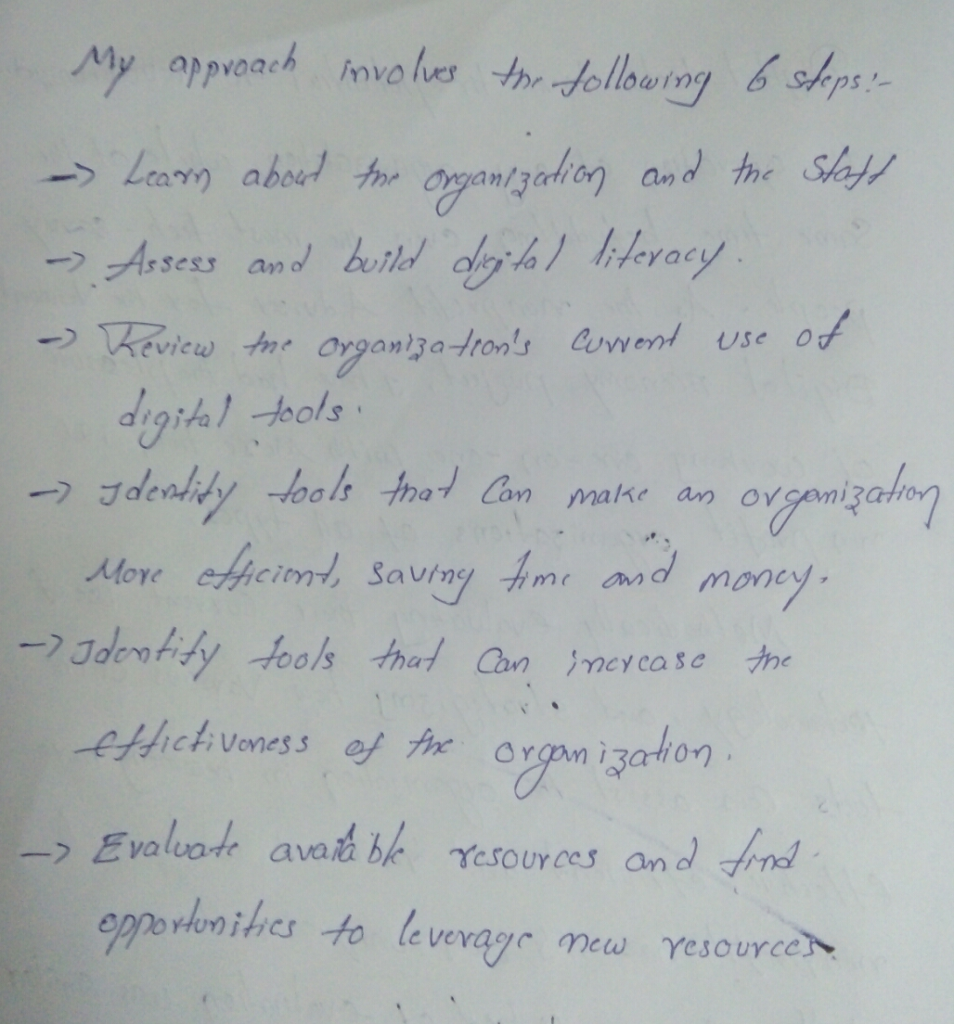 My approach involves the following 6 steps:-
→ Learn about the organization and the Staff
→ Assess and build digital literacy.
→ Review the organization's Current use of
digital tools.
→ Identify tools that Can make an organization
More efficient, saving time and money.
→ Identify tools that Can increase the
effictiveness of the organization.
→ Evaluate available resources and find
opportunities to leverage new resources.